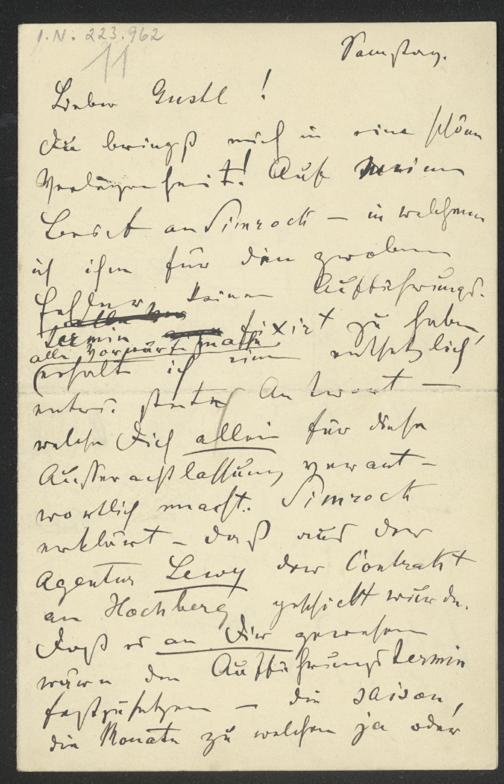 I.N. 223.962
11
Samstag.
Lieber Gustl!
Du bringst mich in eine schöne
Verlegenheit! Auf meinen
Brief an Simrock – in welchem
ich ihm für den groben
Fehler keinen Aufführungs-
termin fixirt zu haben,
alle Vorwürfe machte
erhalte ich eine entsetzlich
Antwort –
welche Dich allein für diese
Ausserachtlassung verant-
wortlich macht. Simrock
erklärt – daß aus der
Agentur Lewy der Contrakt
an Hochberg geschickt wurde.
Daß es an Dir gewesen
wäre den Aufführungstermin
festzusetzen – die Saison,
die Monate zu welchen ja oder